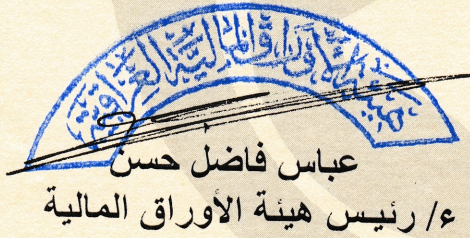 هيئة الأوراق المالية العراقية
عباس فاضل حسن
ء/ رئيس هيئة الأوراق المالية